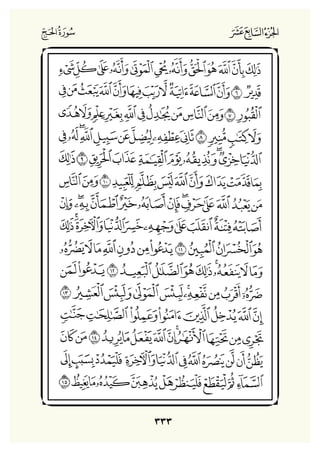 الجُزْءُ السَّابِعَ عَشَرَ
سُورَةُ الحَجِّ
ذَٰلِكَ بِأَنَّ ٱللَّهَ هُوَ ٱلْحَقُّ وَأَنَّهُۥ يُحْيِ ٱلْمَوْتَىٰ وَأَنَّهُۥ عَلَىٰ كُلِّ شَيْءٍ
قَدِيرٌ ٦ وَأَنَّ ٱلسَّاعَةَ ءَاتِيَةٌ لَّا رَيْبَ فِيهَا وَأَنَّ ٱللَّهَ يَبْعَثُ مَن فِي
ٱلْقُبُورِ ٧ وَمِنَ ٱلنَّاسِ مَن يُجَٰدِلُ فِي ٱللَّهِ بِغَيْرِ عِلْمٍ وَلَا هُدًى
وَلَا كِتَٰبٍ مُّنِيرٍ ٨ ثَانِيَ عِطْفِهِۦ لِيُضِلَّ عَن سَبِيلِ ٱللَّهِ ۖ لَهُۥ فِي
ٱلدُّنْيَا خِزْيٌ ۖ وَنُذِيقُهُۥ يَوْمَ ٱلْقِيَٰمَةِ عَذَابَ ٱلْحَرِيقِ ٩ ذَٰلِكَ
بِمَا قَدَّمَتْ يَدَاكَ وَأَنَّ ٱللَّهَ لَيْسَ بِظَلَّٰمٍ لِّلْعَبِيدِ ١٠ وَمِنَ ٱلنَّاسِ
مَن يَعْبُدُ ٱللَّهَ عَلَىٰ حَرْفٍ ۖ فَإِنْ أَصَابَهُۥ خَيْرٌ ٱطْمَأَنَّ بِهِۦ ۖ وَإِنْ
أَصَابَتْهُ فِتْنَةٌ ٱنقَلَبَ عَلَىٰ وَجْهِهِۦ خَسِرَ ٱلدُّنْيَا وَٱلْءَاخِرَةَ ۚ ذَٰلِكَ
هُوَ ٱلْخُسْرَانُ ٱلْمُبِينُ ١١ يَدْعُوا۟ مِن دُونِ ٱللَّهِ مَا لَا يَضُرُّهُۥ
وَمَا لَا يَنفَعُهُۥ ۚ ذَٰلِكَ هُوَ ٱلضَّلَٰلُ ٱلْبَعِيدُ ١٢ يَدْعُوا۟ لَمَن
ضَرُّهُۥٓ أَقْرَبُ مِن نَّفْعِهِۦ ۚ لَبِئْسَ ٱلْمَوْلَىٰ وَلَبِئْسَ ٱلْعَشِيرُ ١٣
إِنَّ ٱللَّهَ يُدْخِلُ ٱلَّذِينَ ءَامَنُوا۟ وَعَمِلُوا۟ ٱلصَّٰلِحَٰتِ جَنَّٰتٍ
تَجْرِي مِن تَحْتِهَا ٱلْأَنْهَٰرُ ۚ إِنَّ ٱللَّهَ يَفْعَلُ مَا يُرِيدُ ١٤ مَن كَانَ
يَظُنُّ أَن لَّن يَنصُرَهُ ٱللَّهُ فِي ٱلدُّنْيَا وَٱلْءَاخِرَةِ فَلْيَمْدُدْ بِسَبَبٍ إِلَى
ٱلسَّمَآءِ ثُمَّ لْيَقْطَعْ فَلْيَنظُرْ هَلْ يُذْهِبَنَّ كَيْدُهُۥ مَا يَغِيظُ ١٥
٣٣٣